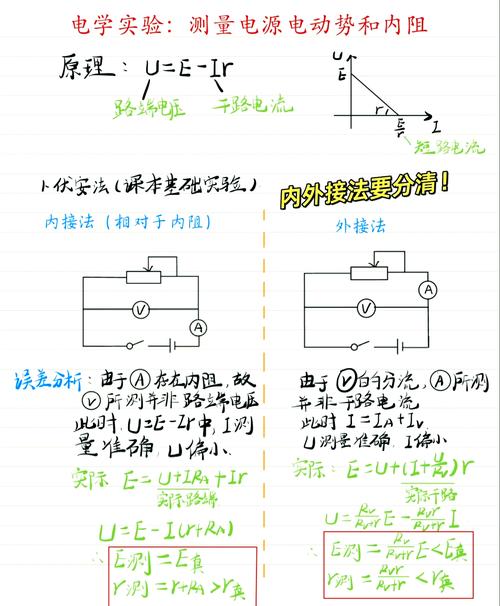 电学实验：测量电源电动势和内阻
原理：U=E-Ir
路端电压 干路电流
U
E
r
E/r
I
短路电流
1.伏安法(课本基础实验)
内外接法要分清！
内接法（相对于内阻）
V
A
误差分析：由于Ⓐ存在内阻，故
Ⓥ所测并非路端电压
此时，U=E-Ir中，I测
量准确，U偏小.
实际 E=U+IRA+Ir
实际路端
U=E-I(r+RA)
∴ E测=E真
r测=r+RA>r真
外接法
A
V
由于Ⓥ的分流，Ⓐ所测
并非干路电流
此时 I=IA+IV
U测量准确，I偏小
实际：E=U+(I+U/RV)r
实际干路
U=RV/(RV+r)E-RVr/(RV+r)I
∴ E测=RV/(RV+r)E<E真
r测=RVr/(RV+r)<r真